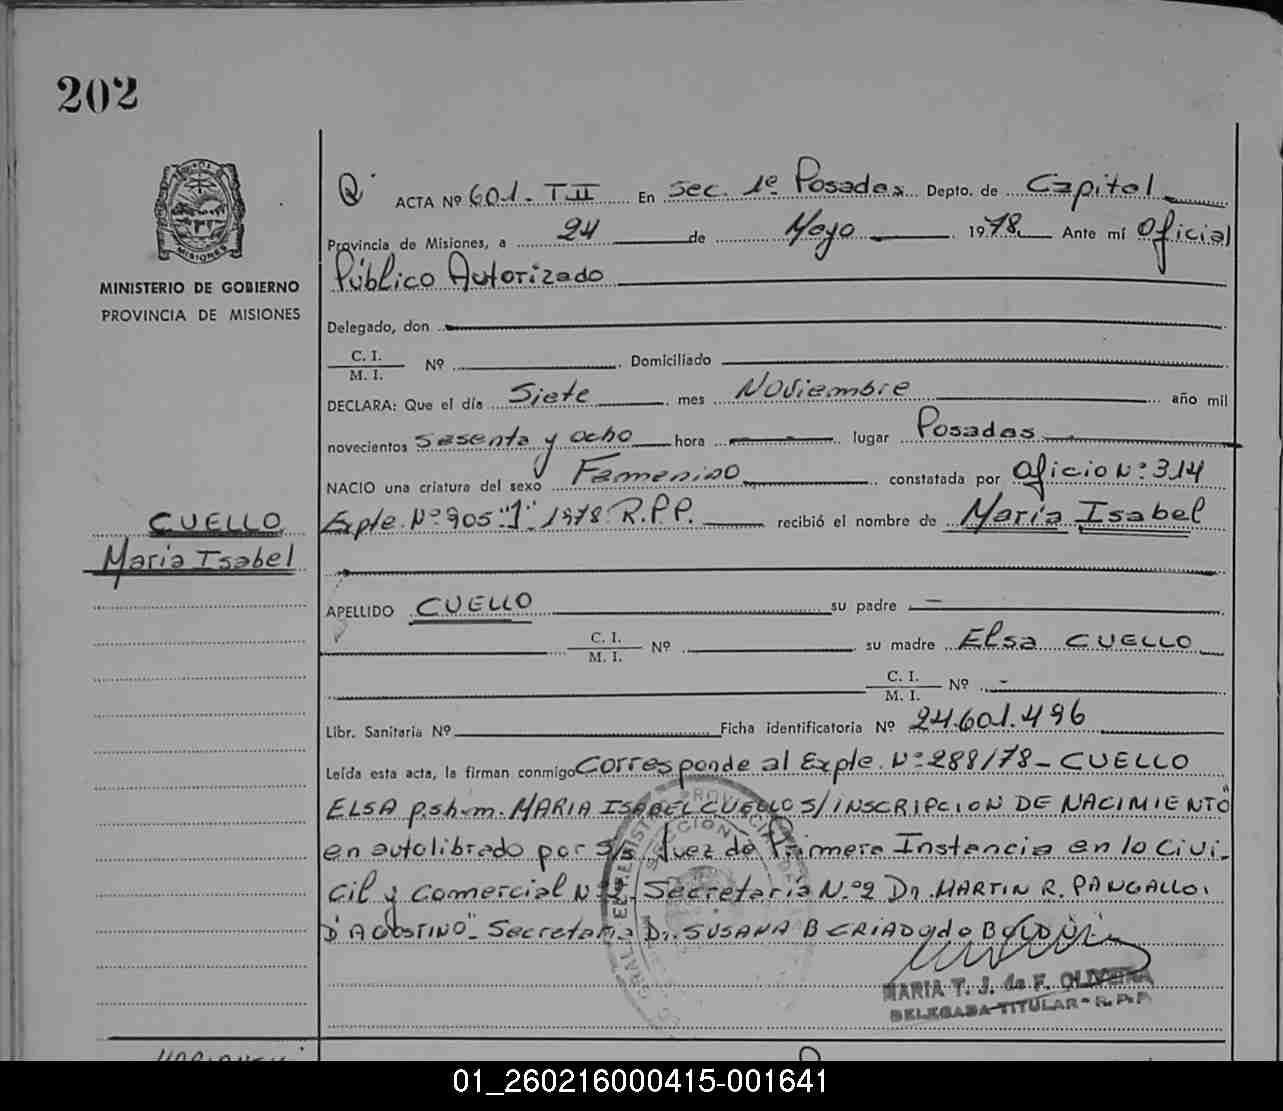 202
MISIONES
MINISTERIO DE GOBIERNO
PROVINCIA DE MISIONES
CUELLO
Maria Isabel
ACTA Nº 601. T II En Sec. 1º Posadas Depto. de Capital
Provincia de Misiones, a 24 de Mayo 1978. Ante mí Oficial
Público Autorizado
Delegado, don
C. I.
M. I. Nº Domiciliado
DECLARA: Que el día Siete mes Noviembre año mil
novecientos Sesenta y ocho hora lugar Posadas
NACIO una criatura del sexo Femenino constatada por Oficio Nº 314
Expte. Nº 905 "J" 1978 R.P.P. recibió el nombre de Maria Isabel
APELLIDO CUELLO su padre —
C. I.
M. I. Nº su madre Elsa CUELLO
C. I.
M. I. Nº -
Libr. Sanitaria Nº Ficha identificatoria Nº 24.601.496
Leída esta acta, la firman conmigo Corresponde al Expte. Nº 288/78 - CUELLO
ELSA p.s.h.m. MARIA ISABEL CUELLO S/INSCRIPCION DE NACIMIENTO"
en auto librado por S/S Juez de Primera Instancia en lo Civi-
cil y Comercial Nº Secretaria N.º 2 Dr. MARTIN R. PANGALLO.
D'AGOSTINO"- Secretaria Dr. SUSANA B CRIADO de
MARIA T. J. de F. OLIVEIRA
DELEGADA TITULAR - R.P.P.
01_260216000415-001641